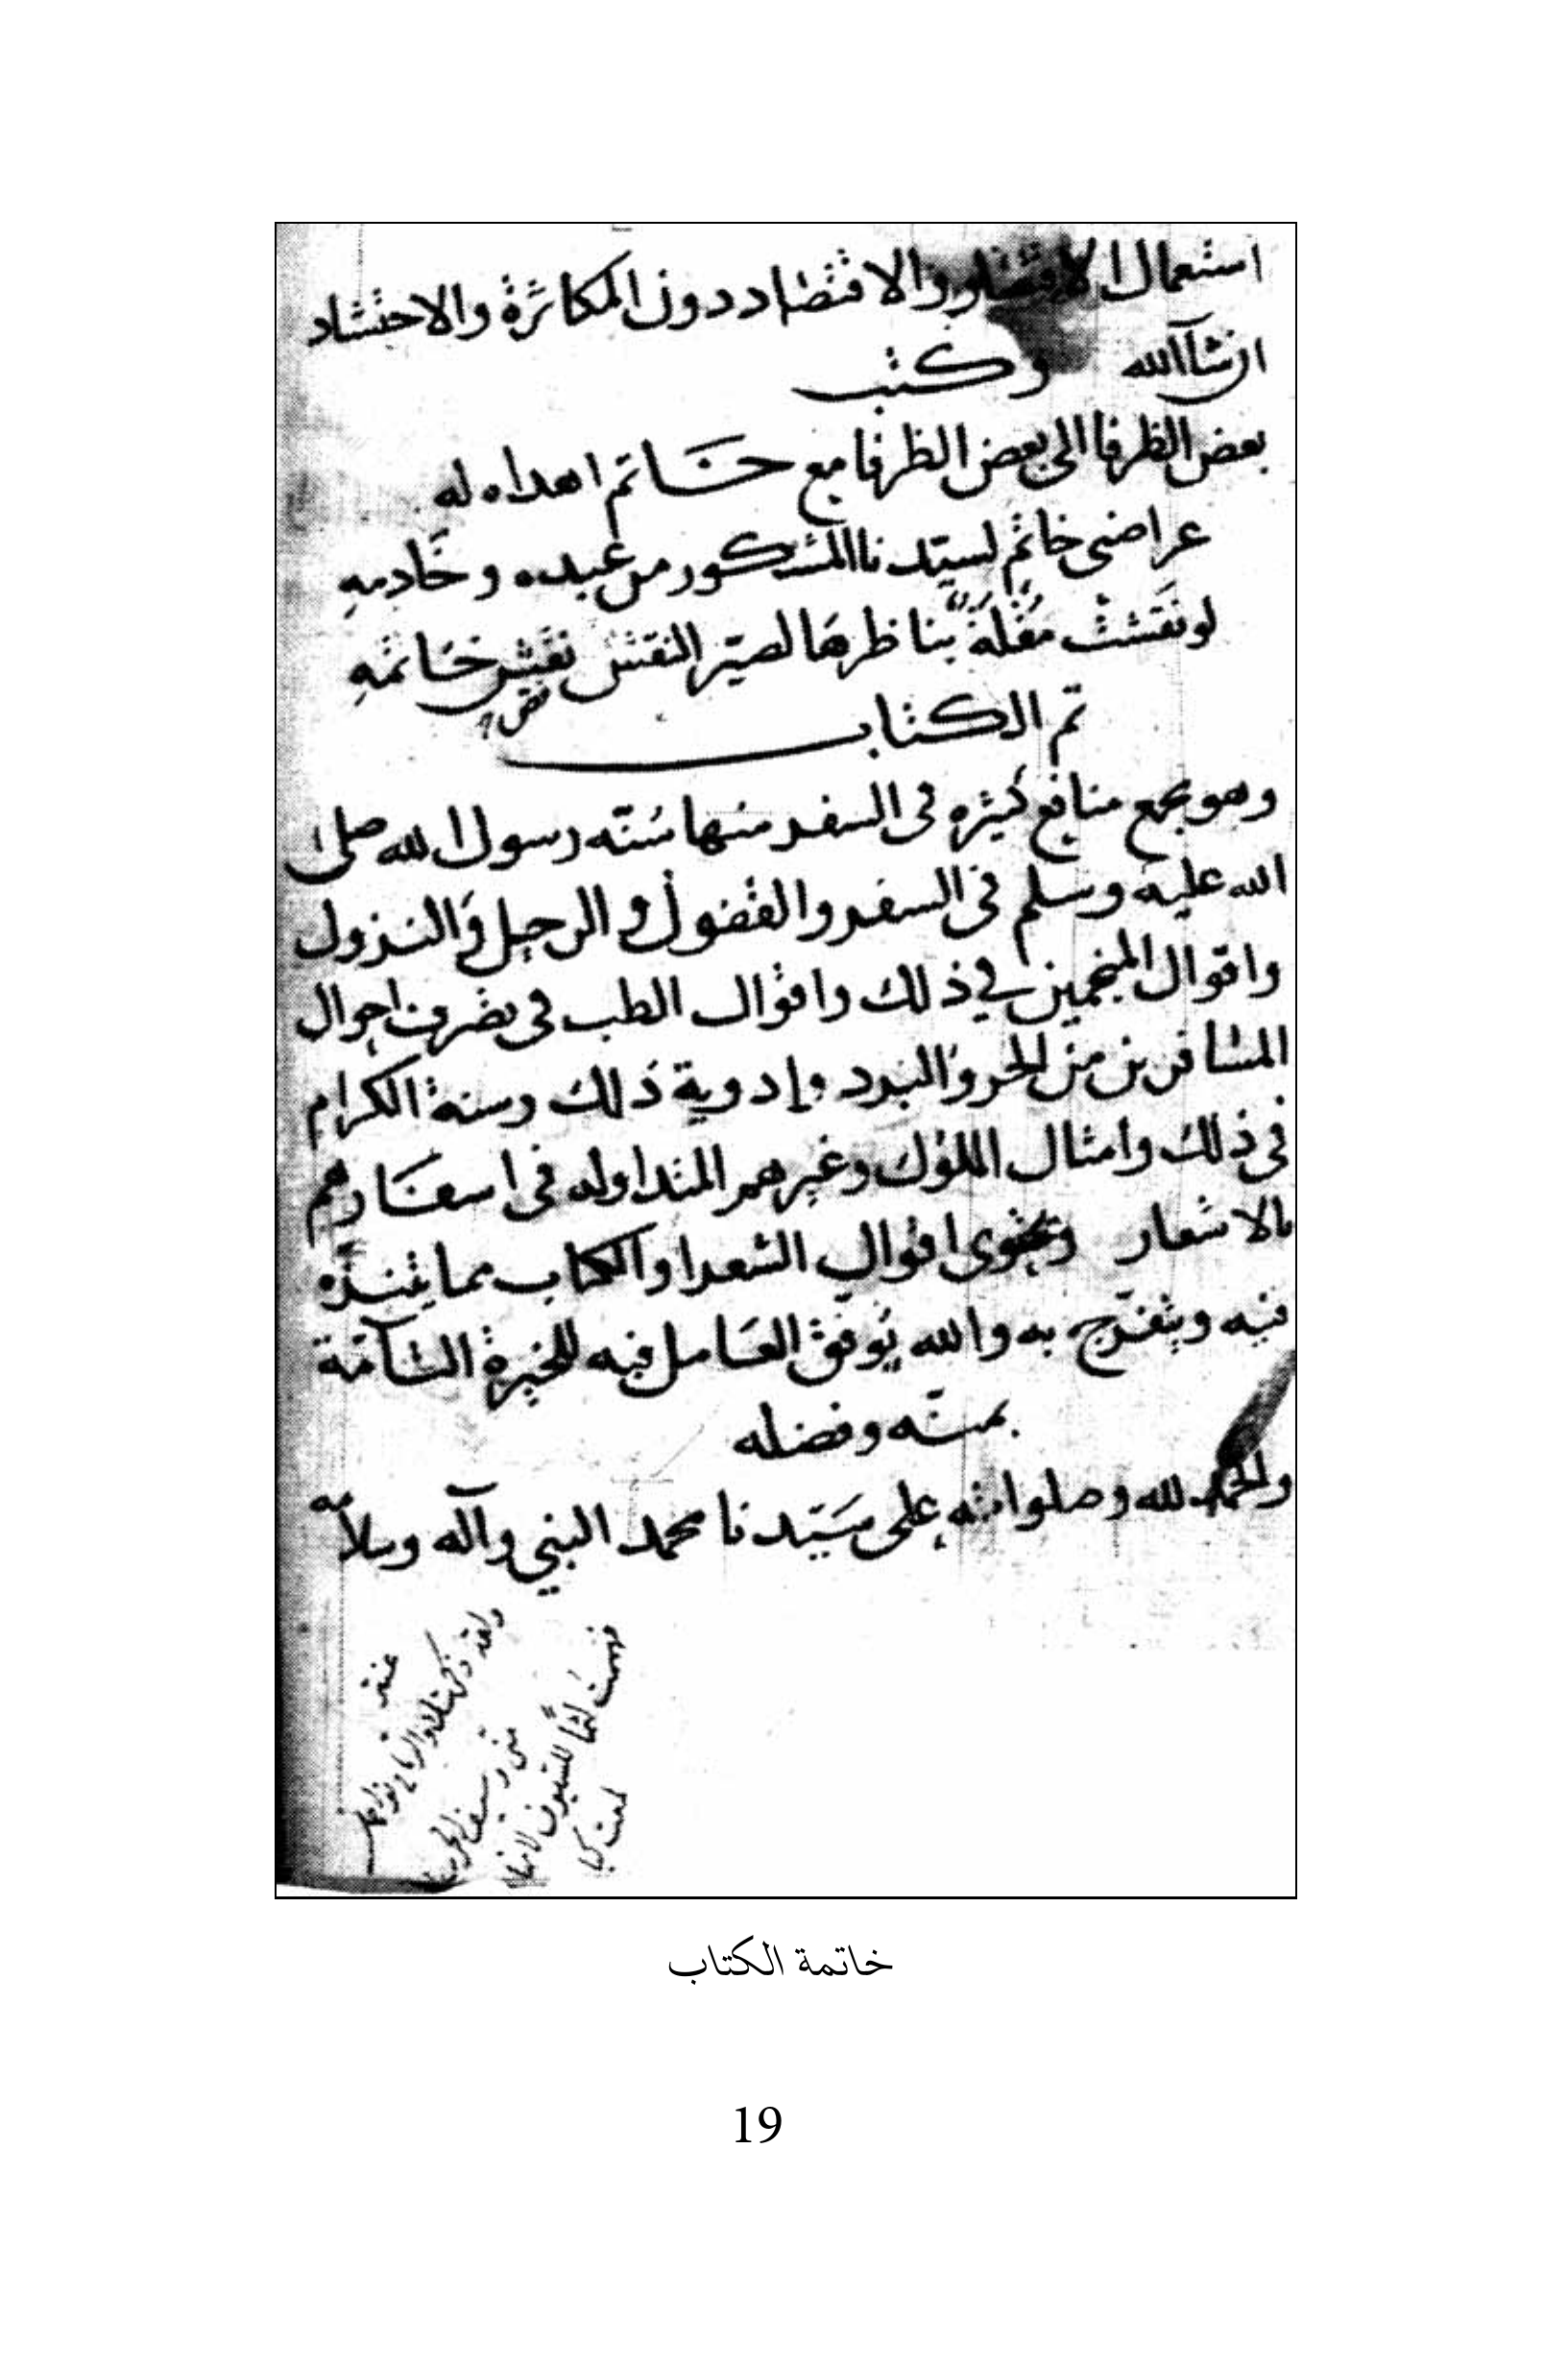 استعمال والاقتصاد دون المكاثرة والاحتشاد
ان شاآلله وكتب
بعض الظرفا الى بعض الظرفا مع خاتم اهداه له
خاتم لسيدنا المشكور من عبده وخادمهِ
لو نقشت مقلة بناظرها لصيّر النقش نقش خاتمهِ
تم الكتاب
وهو يجمع منافع كثيره فى السفر منها سنّه رسول الله صلى
الله عليه وسلم فى السفر والقفول والرحيل والنزول
واقوال المنجمين في ذلك واقوال الطب فى تصرف احوال
المسافرين من الحر والبرد وادوية ذلك وسنة الكرام
فى ذلك وامثال الملوك وغيرهم المتداوله فى اسفارهم
بالاشعار وتحوى اقوال الشعرا والكتاب مما يتنزّه
فيه ويتفرّج به والله يوفق العامل فيه للخيرة التآمّة
بمنّه وفضله
والحمد لله وصلواته على سيّدنا محمد النبي وآله وسلامه
عنتر
ولقد ذكرتك والرماح نواهل
منى وبيض
لمعت
خاتمة الكتاب
19